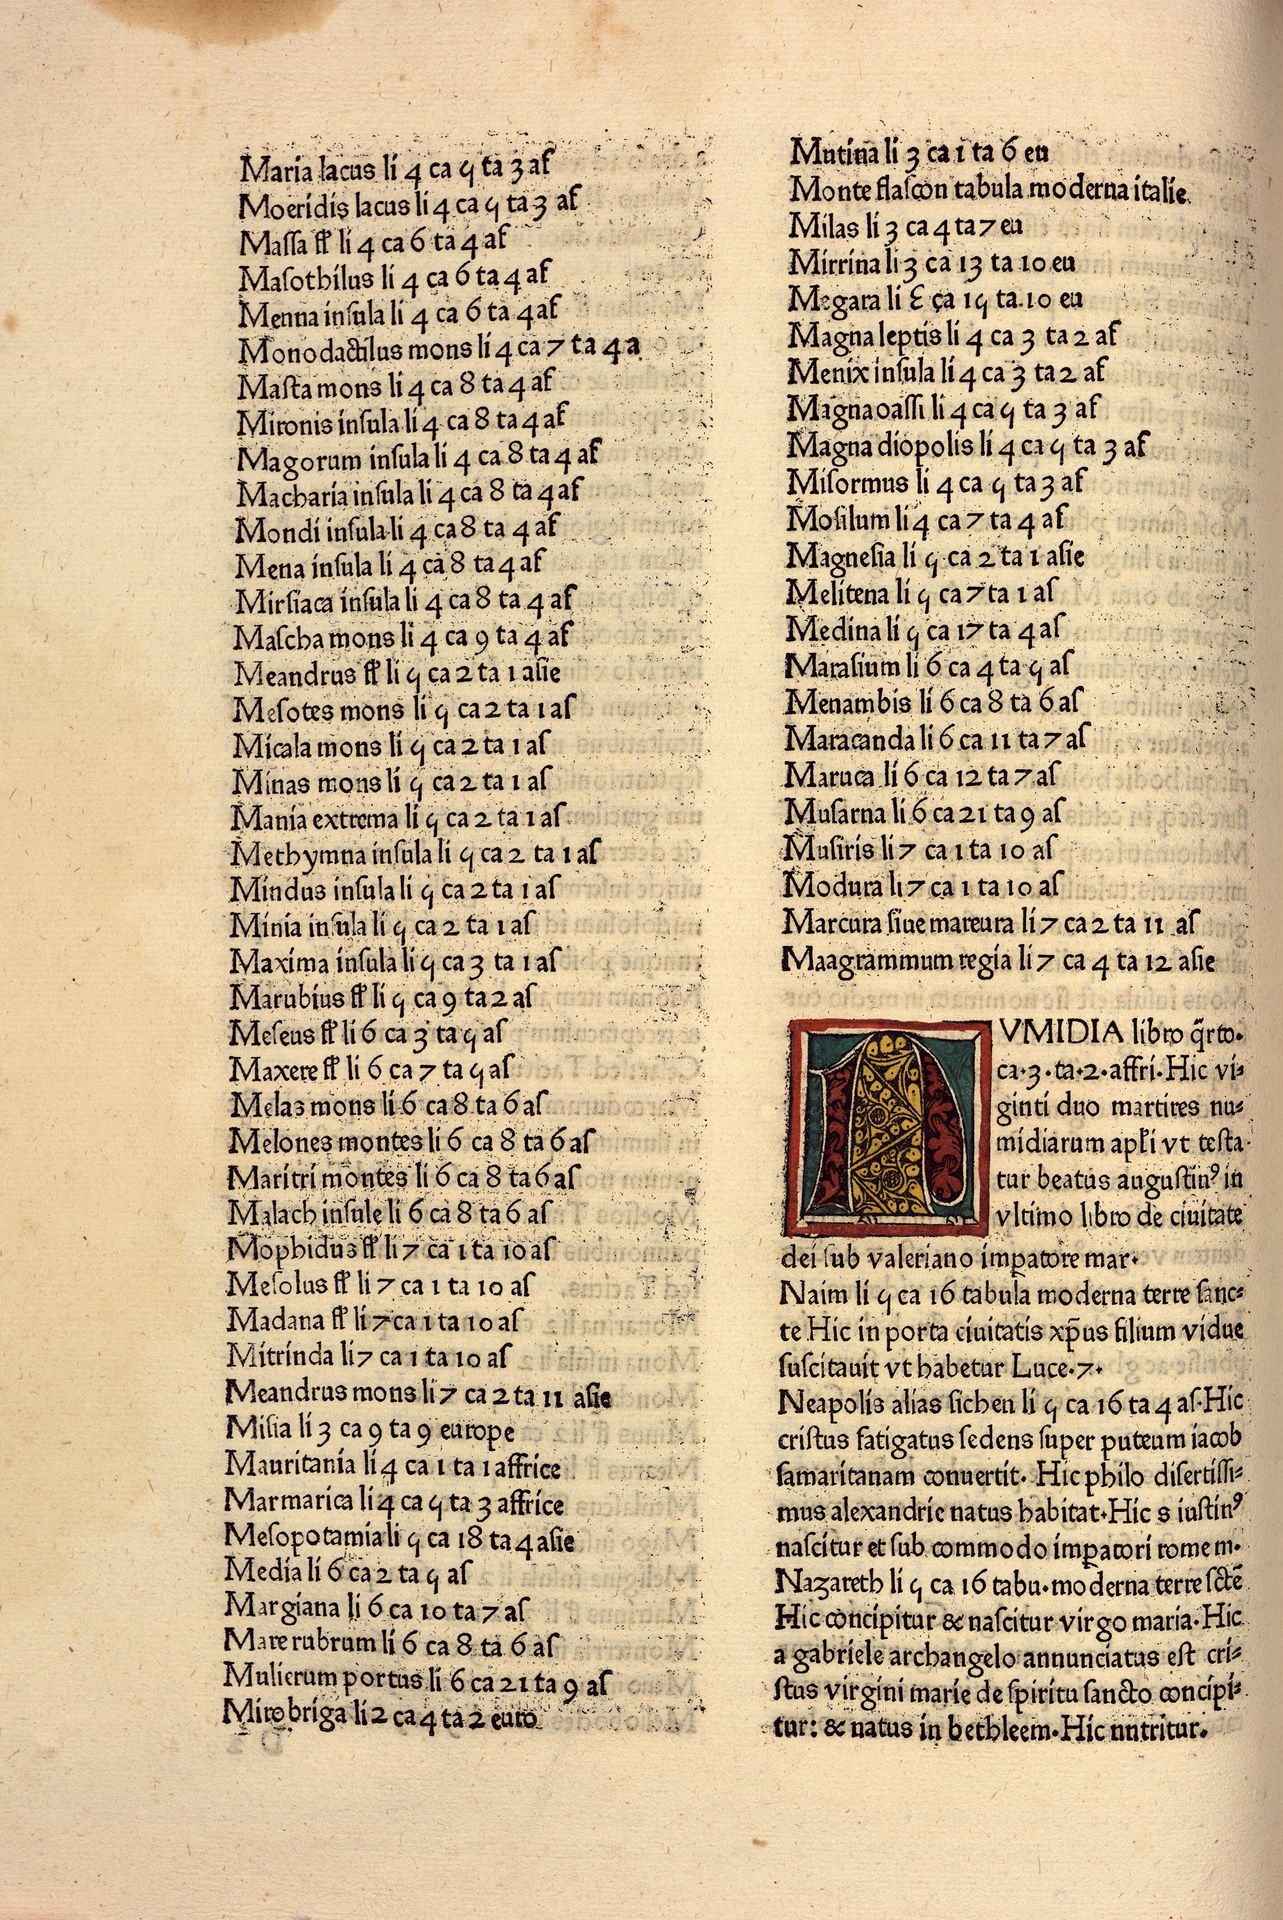 Maria lacus li 4 ca 5 ta 3 af
Moeridis lacus li 4 ca 5 ta 3 af
Massa fl̄ li 4 ca 6 ta 4 af
Masothilus li 4 ca 6 ta 4 af
Menna insula li 4 ca 6 ta 4 af
Monodactilus mons li 4 ca 7 ta 4 a
Masta mons li 4 ca 8 ta 4 af
Mironis insula li 4 ca 8 ta 4 af
Magorum insula li 4 ca 8 ta 4 af
Macharia insula li 4 ca 8 ta 4 af
Mondi insula li 4 ca 8 ta 4 af
Mena insula li 4 ca 8 ta 4 af
Mirsiaca insula li 4 ca 8 ta 4 af
Mascha mons li 4 ca 9 ta 4 af
Meandrus fl̄ li 5 ca 2 ta 1 asie
Mesotes mons li 5 ca 2 ta 1 as
Micala mons li 5 ca 2 ta 1 as
Minas mons li 5 ca 2 ta 1 as
Mania extrema li 5 ca 2 ta 1 as
Methymna insula li 5 ca 2 ta 1 as
Mindus insula li 5 ca 2 ta 1 as
Minia insula li 5 ca 2 ta 1 as
Maxima insula li 5 ca 3 ta 1 as
Marubius fl̄ li 5 ca 9 ta 2 as
Meseus fl̄ li 6 ca 3 ta 5 as
Maxere fl̄ li 6 ca 7 ta 5 as
Melas mons li 6 ca 8 ta 6 as
Melones montes li 6 ca 8 ta 6 as
Maritri montes li 6 ca 8 ta 6 as
Malach insule li 6 ca 8 ta 6 as
Mophidus fl̄ li 7 ca 1 ta 10 as
Mesolus fl̄ li 7 ca 1 ta 10 as
Madana fl̄ li 7 ca 1 ta 10 as
Mitrinda li 7 ca 1 ta 10 as
Meandrus mons li 7 ca 2 ta 11 asie
Misia li 3 ca 9 ta 9 europe
Mauritania li 4 ca 1 ta 1 affrice
Marmarica li 4 ca 5 ta 3 affrice
Mesopotamia li 5 ca 18 ta 4 asie
Media li 6 ca 2 ta 5 as
Margiana li 6 ca 10 ta 7 as
Mare rubrum li 6 ca 8 ta 6 as
Mulierum portus li 6 ca 21 ta 9 as
Mirobriga li 2 ca 4 ta 2 euro
Mutina li 3 ca 1 ta 6 eu
Monte flascon tabula moderna italie
Milas li 3 ca 4 ta 7 eu
Mirrina li 3 ca 13 ta 10 eu
Megara li Ɛ ca 15 ta. 10 eu
Magna leptis li 4 ca 3 ta 2 af
Menix insula li 4 ca 3 ta 2 af
Magna oassi li 4 ca 5 ta 3 af
Magna diopolis li 4 ca 5 ta 3 af
Misormus li 4 ca 5 ta 3 af
Mosilum li 4 ca 7 ta 4 af
Magnesia li 5 ca 2 ta 1 asie
Melitena li 5 ca 7 ta 1 as
Medina li 5 ca 17 ta 4 as
Marasium li 6 ca 4 ta 5 as
Menambis li 6 ca 8 ta 6 as
Maracanda li 6 ca 11 ta 7 as
Maruca li 6 ca 12 ta 7 as
Musarna li 6 ca 21 ta 9 as
Musiris li 7 ca 1 ta 10 as
Modura li 7 ca 1 ta 10 as
Marcura siue mareura li 7 ca 2 ta 11 as
Maagrammum regia li 7 ca 4 ta 12 asie
NVMIDIA libro q̄rto·
ca·3·ta·2·affri·Hic vi⸗
ginti duo martires nu⸗
midiarum apl̄i vt testa·
tur beatus augustinꝰ in
vltimo libro de ciuitate
dei sub valeriano imꝑatore mar·
Naim li 5 ca 16 tabula moderna terre sanc⸗
te Hic in porta ciuitatis xp̄us filium vidue
suscitauit vt habetur Luce·7·
Neapolis alias sichen li 5 ca 16 ta 4 as·Hic
cristus fatigatus sedens super puteum iacob
samaritanam conuertit· Hic philo disertissi⸗
mus alexandrie natus habitat·Hic s iustinꝰ
nascitur et sub commodo imꝑatori rome m·
Nazareth li 5 ca 16 tabu·moderna terre sctē
Hic concipitur & nascitur virgo maria·Hic
a gabriele archangelo annunciatus est cri⸗
stus virgini marie de spiritu sancto concipi⸗
tur: & natus in bethleem·Hic nutritur·